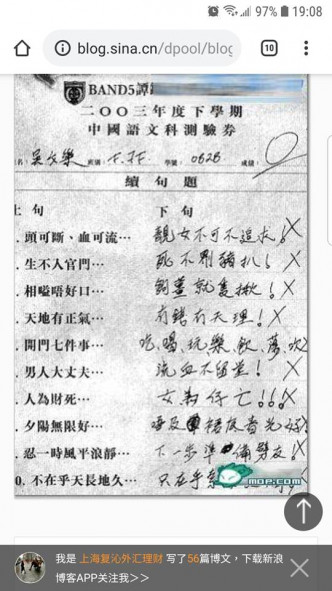 97% 19:08
blog.sina.cn/dpool/blog 10
BAND5譚
二○○三年度下學期
中國語文科測驗券
名: 吳 樂 班別: 學號: 0828 成績:
續句題
上句 下句
.頭可斷、血可流… 靚女不可不追求!
.生不入官門… 死不 豬扒!
.相嗌唔好口… 就隻揪!
.天地有正氣… 有錢有天理!
.開門七件事… 吃、喝、玩、樂、飲、蕩、吹
.男人大丈夫… 流血不留堂!
.人為財死… 女為仔亡!!!
.夕陽無限好… 唔及
.忍一時風平浪靜… 下一步準備劈友!
0.不在乎天長地久… 只在乎
MOP.COM
我是 上海复沁外汇理财 写了56篇博文，下载新浪
博客APP关注我>>